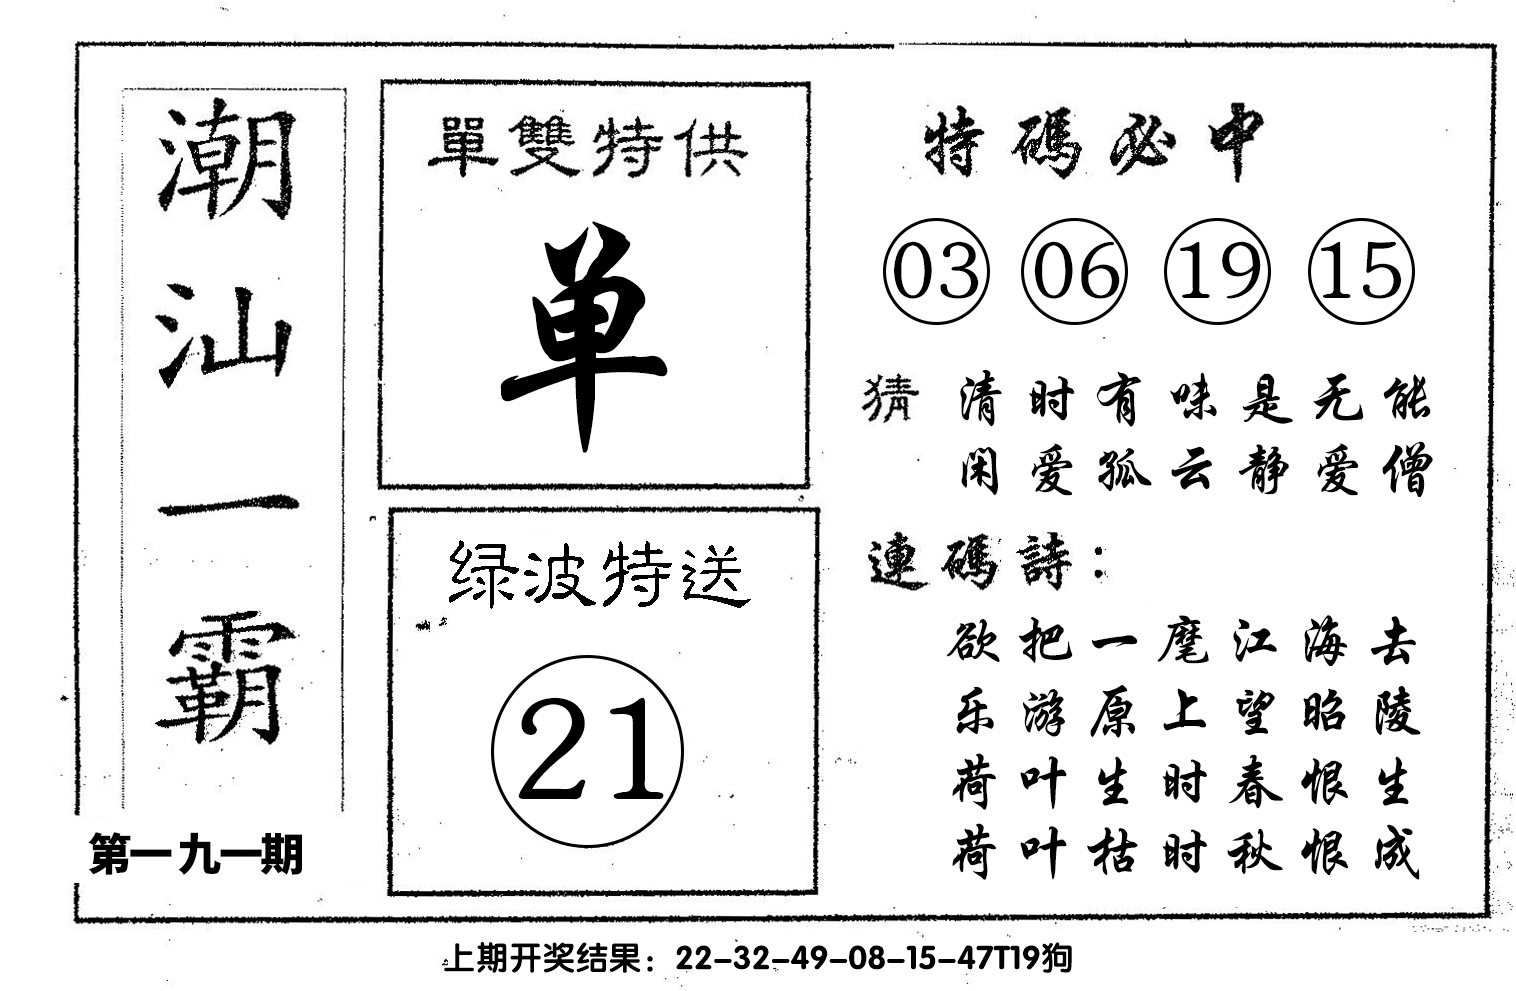 潮汕一霸
第一九一期
單雙特供
单
绿波特送
21
特碼必中
03 06 19 15
猜 清时有味是无能
闲爱孤云静爱僧
連碼詩：
欲把一麾江海去
乐游原上望昭陵
荷叶生时春恨生
荷叶枯时秋恨成
上期开奖结果：22-32-49-08-15-47T19狗